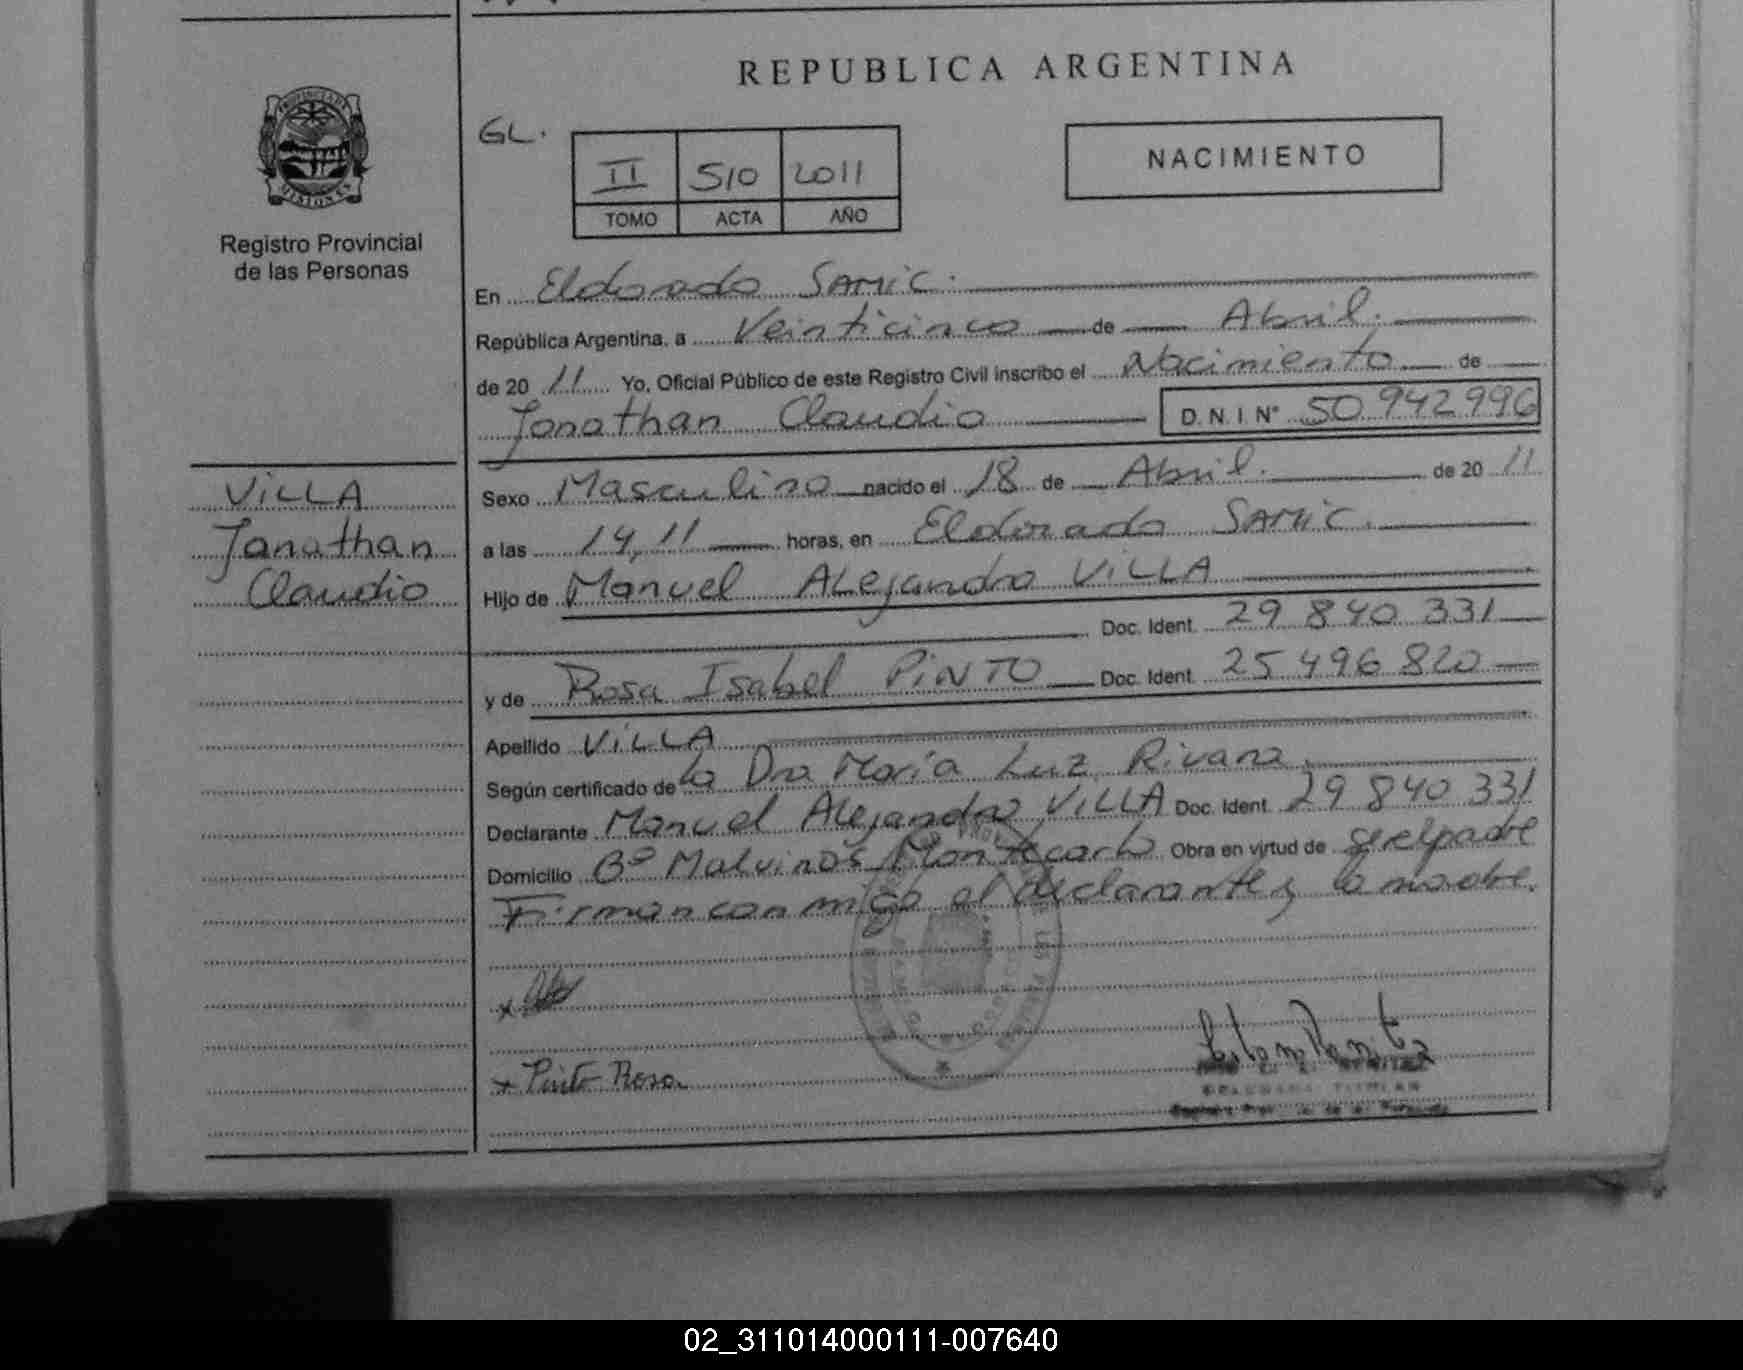 REPUBLICA ARGENTINA
PROVINCIA DE
MISIONES
Registro Provincial
de las Personas
GL.
II 510 2011
TOMO ACTA AÑO
NACIMIENTO
En Eldorado SAMIC.
República Argentina, a Veinticinco de Abril.
de 20 11 Yo, Oficial Público de este Registro Civil inscribo el Nacimiento de
Jonathan Claudio D.N.I. Nº 50 942 996
VILLA
Jonathan
Claudio
Sexo Masculino nacido el 18 de Abril. de 20 11
a las 14,11 horas, en Eldorado SAMIC.
Hijo de Manuel ALejandro VILLA
Doc. Ident. 29 840 331
y de Rosa Isabel PINTO Doc. Ident. 25 496 820
Apellido VILLA
Según certificado de la Dra María Luz Rivara
Declarante Manuel ALejandro VILLA Doc. Ident. 29 840 331
Domicilio Bº Malvinas Montecarlo Obra en virtud de ser el padre
Firman conmigo el declarante y la madre.
x Pinto Rosa
02_311014000111-007640